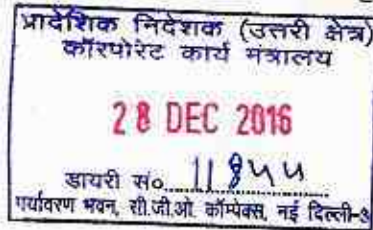 प्रादेशिक निदेशक (उत्तरी क्षेत्र)
कॉरपोरेट कार्य मंत्रालय
28 DEC 2016
डायरी सं०
पर्यावरण भवन, सी.जी.ओ. कॉम्पेक्स, नई दिल्ली-3